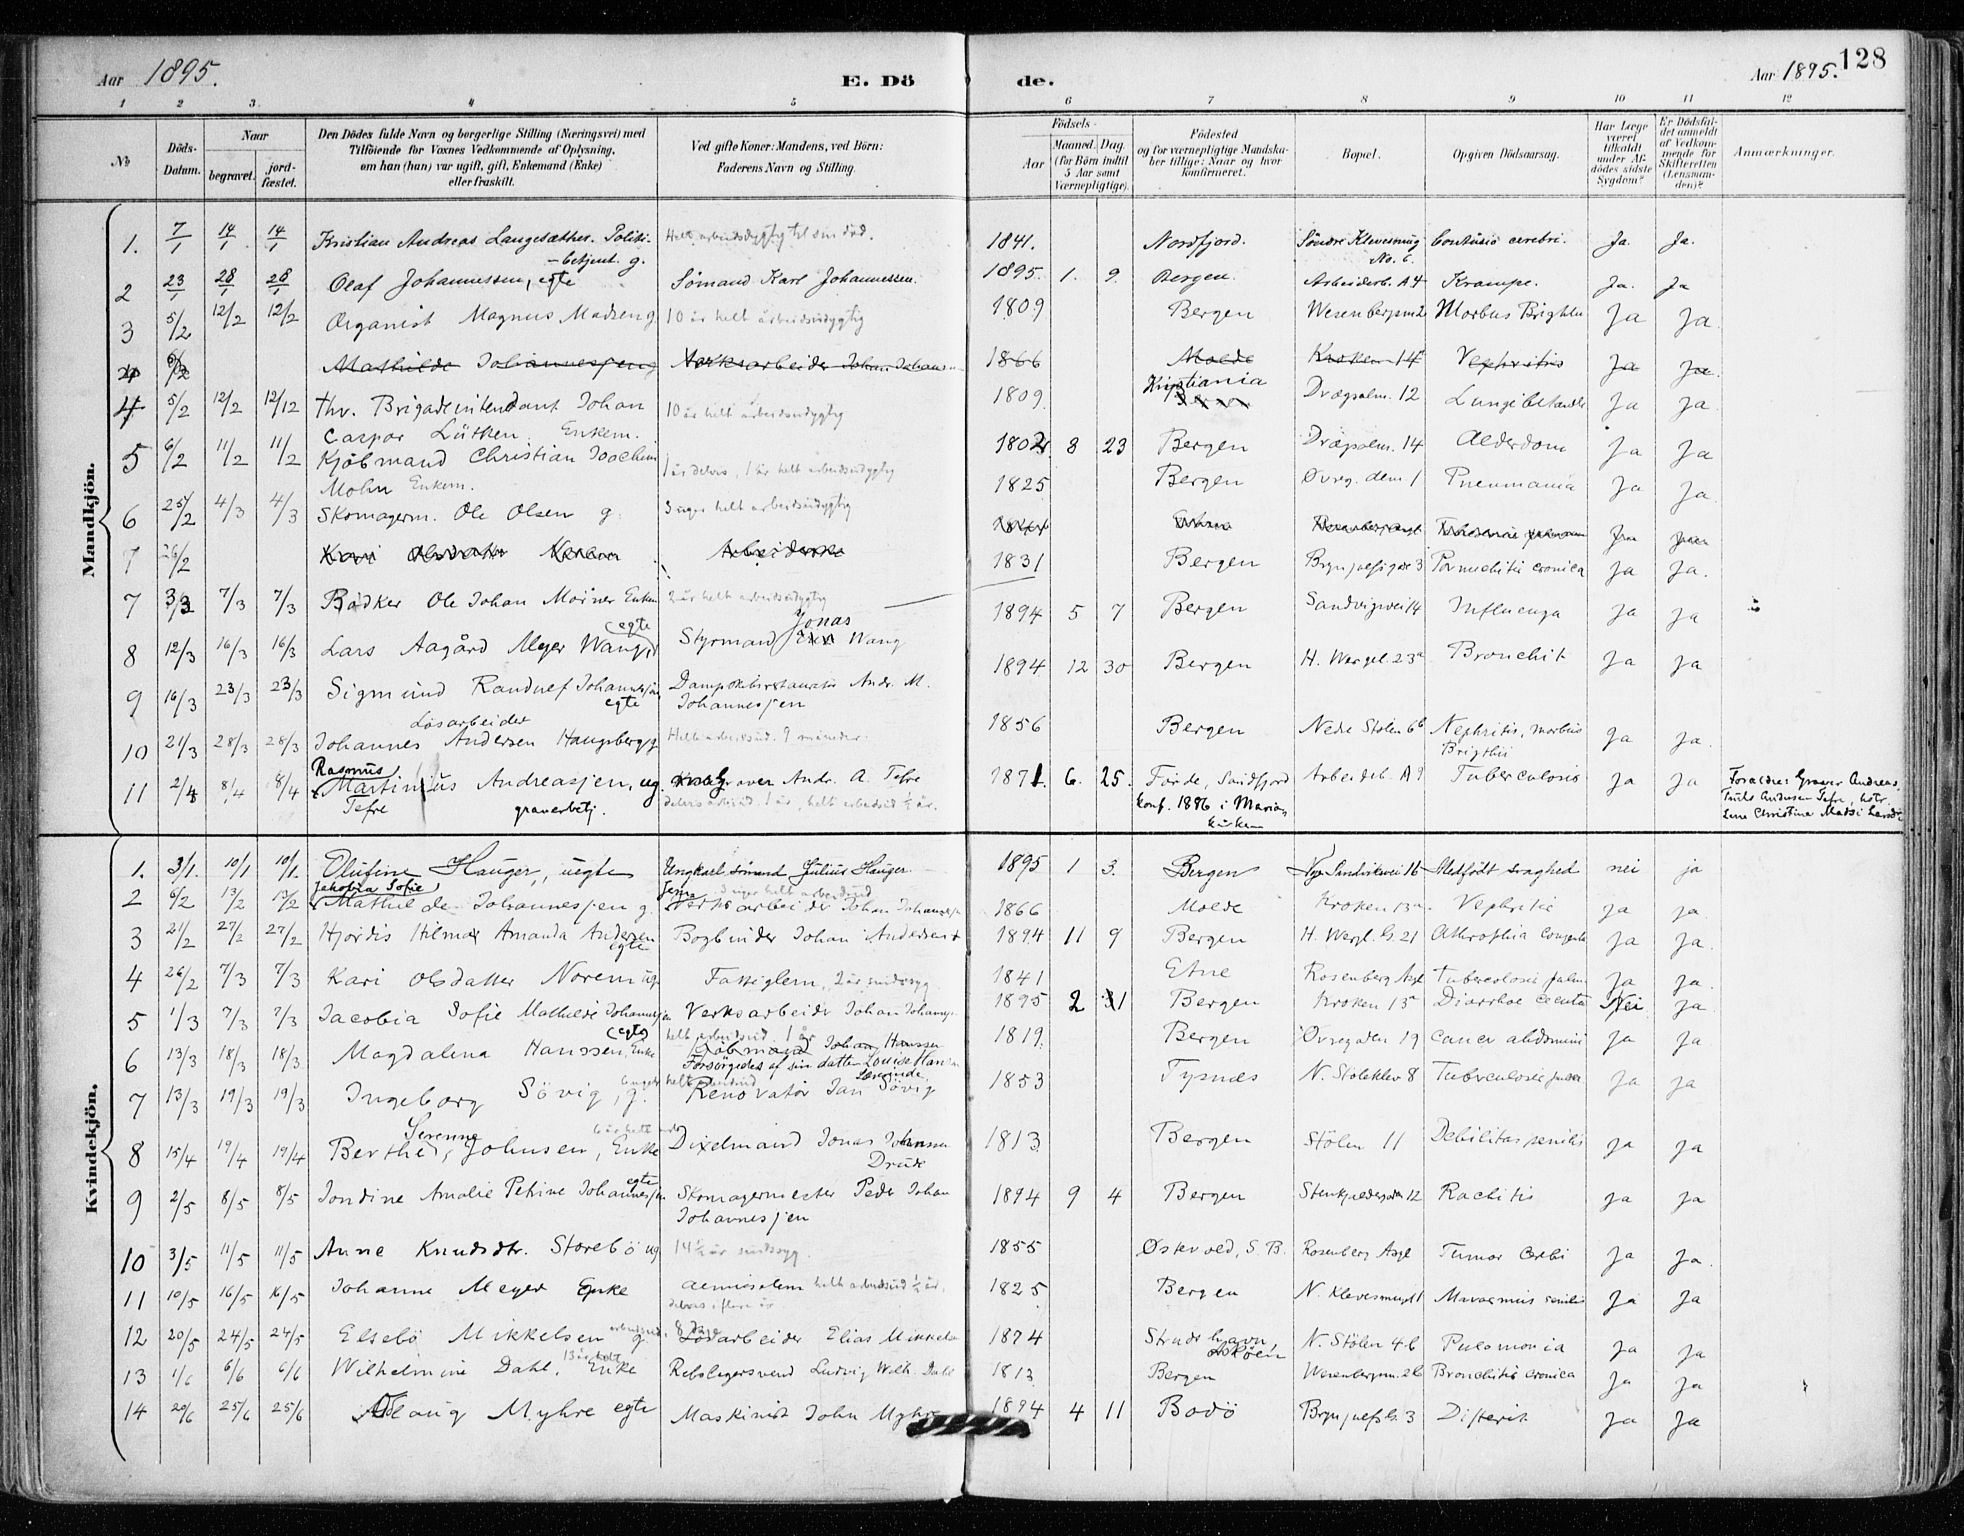 Aar 1895. E. Dö de. Aar 1895. 128
1 2 3. 4 5 6 7 8 9 10 11 12
No Döds-Datum. Naar begravet. jord-fæstet. Den Dödes fulde Navn og borgerlige Stilling (Næringsvei) med Tilföiende for Voxnes Vedkommende af Oplysning, om han (hun) var ugift, gift, Enkemand (Enke) eller fraskilt. Ved gifte Koner: Mandens, ved Börn: Faderens Navn og Stilling. Födsels- Aar Maaned. Dag. (for Börn indtil 5 Aar samt Værnepligtige). Födested og for værnepligtige Mandskaber tillige: Naar og hvor konfirmeret. Bopæl. Opgiven Dödsaarsag. Har Læge været tilkaldt under Afdödes sidste Sygdom? Er Dödsfaldet anmeldt af Vedkommende for Skifteretten (Lensmanden)? Anmærkninger.
Mandkjön.
1. 7/1 14/1 14/1 Kristian Andreas Langesæther. Politi- Helt arbeidsdygtig til sin død. 1841. Nordfjord. Söndre Klevesmug Contusio cerebri. Ja. Ja.
-betjent. g. No. 6.
2 23/1 28/1 28/1 Olaf Johannessen, egte Sömand Karl Johannessen. 1895. 1. 9. Bergen. Arbeiderb. A 4 Krampe. Ja. Ja
3 5/2 12/2 12/2 Organist Magnus Madsen g 10 år helt arbeidsudygtig 1809 Bergen Wesenbergsm 2 Morbus Brightii Ja Ja.
4 6/2 Mathilde Johannessen g Verksarbeider Johan Johans 1866 Molde Kroken 14 Nephritis Ja Ja.
4 5/2 12/2 12/12 fhv. Brigadeintendant Johan 10 år helt arbeidsudygtig 1809 Kristiania Drægsalm. 12 Ja Ja.
Caspar Lütken. Enkem.
5 6/2 11/2 11/2 Kjöbmand Christian Joachim 1 år delvis, 1 år helt arbeidsudygtig 1802 8 23 Bergen Drægsalm. 14 Alderdom Ja Ja
Mohn Enkem.
6 25/2 4/3 4/3 Skomagerm. Ole Olsen g. 3 uger helt arbeidsudygtig 1825 Bergen Øvreg. dem 1 Pneumania Ja Ja.
7 26/2 Kari Olsdatter Norem
7 3/3 7/3 7/3 Bödker Ole Johan Enkem 2 år helt arbeidsudygtig 1831 Bergen Cronica Ja Ja.
8 12/3 16/3 16/3 Lars Aagård Meyer Wang egte Styrmand Jonas Wang 1894 5 7 Bergen Sandvigvei 14 Influenza Ja Ja
9 16/3 23/3 23/3 Sigmund Johannessen egte Andr. M. Johannesjen 1894 12 30 Bergen H. Wergel. 23a Bronchit Ja Ja
10 21/3 28/3 28/3 Lösarbeider
Johannes Andersen Haugsberg g Helt arbeidsud. 9 måneder. 1856 Bergen Nedre Stölen 6b Nephritis, morbus Brigthii Ja Ja.
11 2/4 8/4 8/4 Rasmus Martinius Andreasjen, ug. Andr. A. Tefre 1871 6. 25. Förde, Sundfjord Arbeiderb. A 9 Tuberculosis Ja Ja Forældre: Graver Andreas
Tefre graverbetj. delvis arbeidsud. 1 år, helt arbeidsud ½ år. konf. 1886 i Maria- kirken
Kvindekjön.
1. 3/1. 10/1 10/1. Olufine Hauger, uegte Ungkarl sömand Julius Hauger. 1895 1 3. Bergen Nye Sandviksvei 16 Medfödt svaghed nei ja
2 6/2 13/2 13/2 Jakobia Sofie Mathilde Johannesjen g. Verksarbeider Johan Johannesjen 1866 Molde Kroken 13a. Nephritis Ja Ja.
3 21/2 27/2 27/2 Hjördis Hilmar Amanda Andersen egte Bogbinder Johan Andersen 1894 11 9 Bergen H. Wergl. G. 21 Athrophia Congenita Ja Ja.
4 26/2 7/3 7/3 Kari Olsdatter Norem ug. Fattiglem, 2 år sindssyg 1841 Etne Rosenberg Asyl Tuberculosis pulm Ja Ja.
5 1/3 7/3 7/3 Jacobia Sofie Mathilde Johannesjen egte Verksarbeider Johan Johannes 1895 2 1 Bergen Kroken 13a Diarrhoe Nei Ja.
6 13/3 18/3 18/3 Magdalena Hanssen, Enke helt arbeidsud. 1 år Kjöbmand Johan Hanssen 1819. Bergen Øvregaden 19 Cancer abdomini Ja Ja.
Forsörgedes af sin datter Louise Hanssen
7 13/3 19/3 19/3 Ingeborg Sövig, g. Renovatör Jan Sövig 1853 Tysnæs N. Stöleklev 8 Tuberculosis Ja Ja
8 15/4 19/4 19/4 Berthe Serenne Johnsen, Enke Dixelmand Jonas Johnsen 1813 Bergen Stölen 11 Debilitas senilis Ja Ja
9 2/5 8/5 8/5 Jondine Amalie Petrine Johannesjen egte Skomagermester Peder Johan Johannesjen 1894 9 4 Bergen 12 Rachitis Ja Ja
10 3/5 11/5 11/5 Anne Knudsdtr. Storebö ug 14½ år sindssyg. 1855 Østervold, S. B. Rosenberg Asyl Tumor Cerebri Ja Ja.
11 10/5 16/5 16/5 Johanne Meyer Enke Almisselem helt arbeidsud ½ år. 1825 Bergen N. Klevesmug 1 Marasmus senilis Ja Ja
delvis i flere år
12 20/5 24/5 24/5 Elsebö Mikkelsen g. Lösarbeider Elias Mikkelsen 1874 Strudshavn, Askøen N. Stölen 4b Pulomonia Ja Ja
13 1/6 6/6 6/6 Wilhelmine Dahl. Enke Rebslagersvend Ludvig Wilh. Dahl 1813. Bergen Wesenbergsm. 2b Bronchitis Cronica Ja Ja
14 20/6 25/6 25/6 Aslaug Myhre egte Maskinist John Myhre 1894 4 11 Bodö 3 Difterit Ja Ja